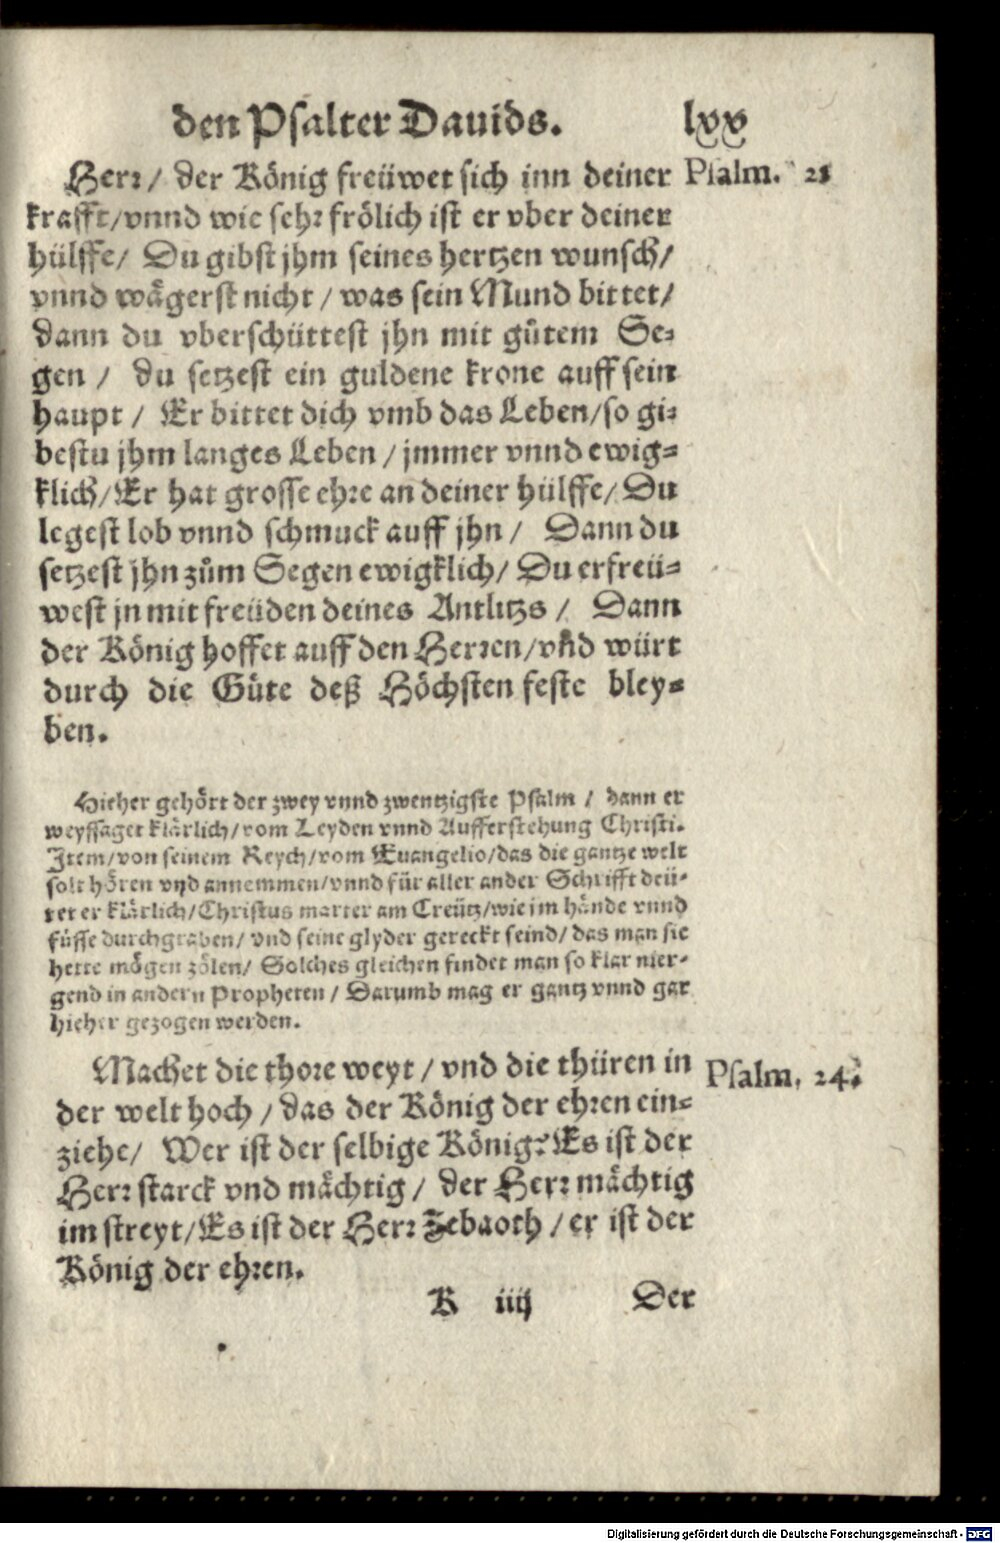 den Psalter Dauids. lxx
Herr / der König freüwet sich inn deiner Psalm. 21
krafft / vnnd wie sehr frölich ist er vber deiner
hülffe / Du gibst jhm seines hertzen wunsch /
vnnd wägerst nicht / was sein Mund bittet /
dann du vberschüttest jhn mit gůtem Se-
gen / du setzest ein guldene krone auff sein
haupt / Er bittet dich vmb das Leben / so gi-
bestu jhm langes Leben / jmmer vnnd ewig-
klich / Er hat grosse ehre an deiner hülffe / Du
legest lob vnnd schmuck auff jhn / Dann du
setzest jhn zům Segen ewigklich / Du erfreü-
west jn mit freüden deines Antlitzs / Dann
der König hoffet auff den Herren / vñd würt
durch die Güte deß Höchsten feste bley-
ben.
Hieher gehört der zwey vnnd zwentzigste Psalm / dann er
weyssaget klärlich / vom Leyden vnnd Aufferstehung Christi.
Item / von seinem Reych / vom Euangelio / das die gantze welt
solt hören vnd annemmen / vnnd für aller ander Schrifft deü-
tet er klärlich / Christus marter am Creütz / wie jm hände vnnd
füsse durchgraben / vnd seine glyder gereckt seind / das man sie
hette mögen zölen / Solches gleichen findet man so klar nier-
gend in andern Propheten / Darumb mag er gantz vnnd gar
hieher gezogen werden.
Machet die thore weyt / vnd die thüren in Psalm. 24.
der welt hoch / das der König der ehren ein-
ziehe / Wer ist der selbige König? Es ist der
Herr starck vnd mächtig / der Herr mächtig
im streyt / Es ist der Herr Zebaoth / er ist der
König der ehren.
K iiij Der
Digitalisierung gefördert durch die Deutsche Forschungsgemeinschaft - DFG